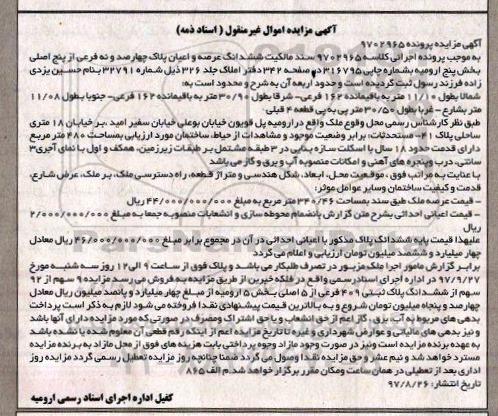 آگهی مزایده اموال غیرمنقول ( اسناد ذمه)
آگهی مزایده پرونده ۹۷۰۲۹۶۵
به موجب پرونده اجرائی کلاسه ۹۷۰۲۹۶۵ سند مالکیت ششدانگ عرصه و اعیان پلاک چهارصد و نه فرعی از پنج اصلی
بخش پنج ارومیه بشماره چاپی ۵۳۱۶۷۹۵ صفحه ۳۴۲ دفتر املاک جلد ۳۲۶ ذیل شماره ۳۲۷۹۱ بنام حسین یزدی
زاده فرزند رسول ثبت گردیده است و حدود اربعه آن به شرح و محدود است به:
شمالا بطول ۱۱/۰۰ متر به باقیمانده ۱۶۲ فرعی- شرقا بطول ۳۰/۹۰ متر به باقیمانده ۱۶۲ فرعی- جنوبا بطول ۱۱/۰۸
متر بشارع - غربا بطول ۳۰/۵۰ متر پی به پی قطعه ۴ قبلی
طبق نظر کارشناس رسمی محل وقوع ملک واقع در ارومیه پل قویون خیابان بوعلی خیابان سفیر امید ،بر خیابان ۱۸ متری
ساحلی پلاک ۴۱- مستحدثات: برابر وضعیت موجود و مشاهدات از حیاط، ساختمان مورد ارزیابی بمساحت ۴۸۰ متر مربع
دارای قدمت حدود ۱۸ سال با اسکلت سازه بنایی در ۳ طبقه مشتمل بر طبقات زیرزمین، همکف و اول با نمای آجری ۳
سانتی، درب وپنجره های آهنی و امکانات منصوبه آب و برق و گاز می باشد
با عنایت به مراتب فوق ،موقعیت محل، ابعاد، شکل هندسی و متراژ قطعه، راه دسترسی ملک، بر ملک، عرض شارع،
قدمت و کیفیت ساختمان وسایر عوامل موثر:
- قیمت عرصه ملک طبق سند بمساحت ۳۴۰/۴۶ متر مربع به مبلغ ۴۴/۰۰۰/۰۰۰/۰۰۰ ریال
- قیمت اعیانی احداثی بشرح متن گزارش بانضمام محوطه سازی و انشعابات منصوبه جمعا به مبلغ ۲/۰۰۰/۰۰۰/۰۰۰
ریال
علیهذا قیمت پایه ششدانگ پلاک مذکور با اعیانی احداثی در آن در مجموع برابر مبلغ ۴۶/۰۰۰/۰۰۰/۰۰۰ ریال معادل
چهار میلیارد و ششصد میلیون تومان ارزیابی و اعلام می گردد
برابر گزارش مامور اجرا ملک مزبور در تصرف طلبکار می باشد و پلاک فوق از ساعت ۹ الی ۱۲ روز سه شنبه مورخ
۹۷/۹/۲۷ در اداره اجرای اسناد رسمی واقع در فلکه خیرین از طریق مزایده به فروش می رسد مزایده ۹ سهم از ۹۲
سهم از ششدانگ پلاک ثبتی ۴۰۹ فرعی از ۵ اصلی بخش ۵ ارومیه از مبلغ چهار میلیارد و پانصد میلیون ریال معادل
چهارصد و پنجاه میلیون تومان شروع و به بالاترین قیمت پیشنهادی نقدا فروخته می شود لازم به ذکر است پرداخت
بدهی های مربوط به آب، برق، گاز اعم از حق انشعاب و یا حق اشتراک ومصرف در صورتی که مورد مزایده دارای آنها باشد
و نیز بدهی های مالیاتی و عوارض شهرداری و غیره تا تاریخ مزایده اعم از اینکه رقم قطعی آن معلوم شده یا نشده باشد
به عهده برنده مزایده است ونیز در صورت وجود مازاد وجوه پرداختی بابت هزینه های فوق از محل مازاد به برنده مزایده
مسترد خواهد شد و نیم عشر و حق مزایده نقدا وصول می گردد ضمنا چنانچه روز مزایده تعطیل رسمی گردد مزایده روز
اداری بعد از تعطیلی در همان ساعت ومکان مقرر برگزار خواهد شد.م الف ۸۶۵
تاریخ انتشار: ۹۷/۸/۲۶
کفیل اداره اجرای اسناد رسمی ارومیه